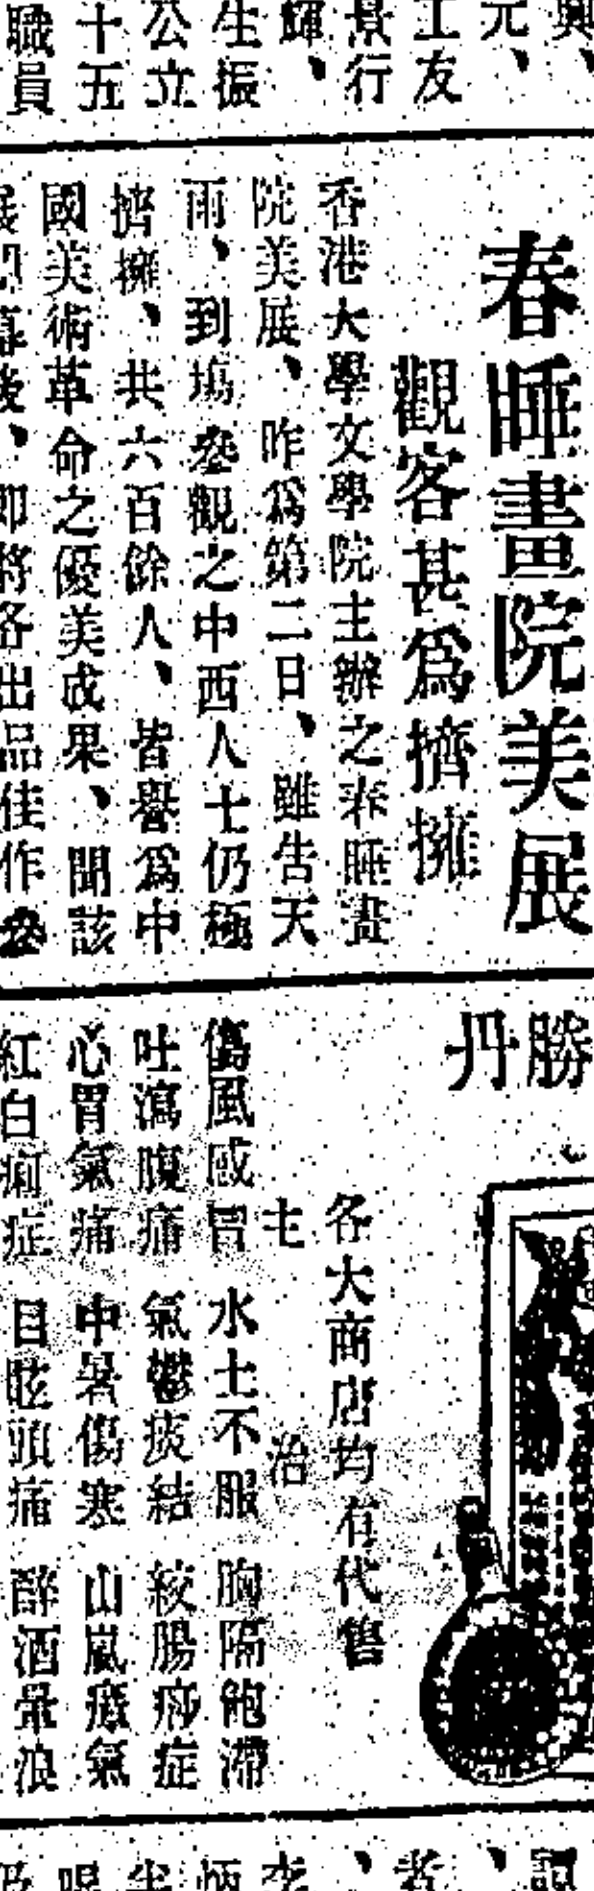 興、
元、
工友
景行
輝、
生振
公立
十五
職員
春睡畫院美展
觀客甚爲擠擁
香港大學文學院主辦之春睡畫
院美展、昨爲第二日、雖告天
雨、到塲叅觀之中西人士仍極
擠擁、共六百餘人、皆譽爲中
國美術革命之優美成果、聞該
展閉幕後、即將各出品佳作叅
勝
丹
各大商店均有代售
主治
傷風感冒 水土不服 胸隔飽滯
吐瀉腹痛 氣鬱痰結 絞腸痧症
心胃氣痛 中暑傷寒 山嵐瘴氣
紅白痢症 目眩頭痛 醉酒暈浪
者、
李
炳